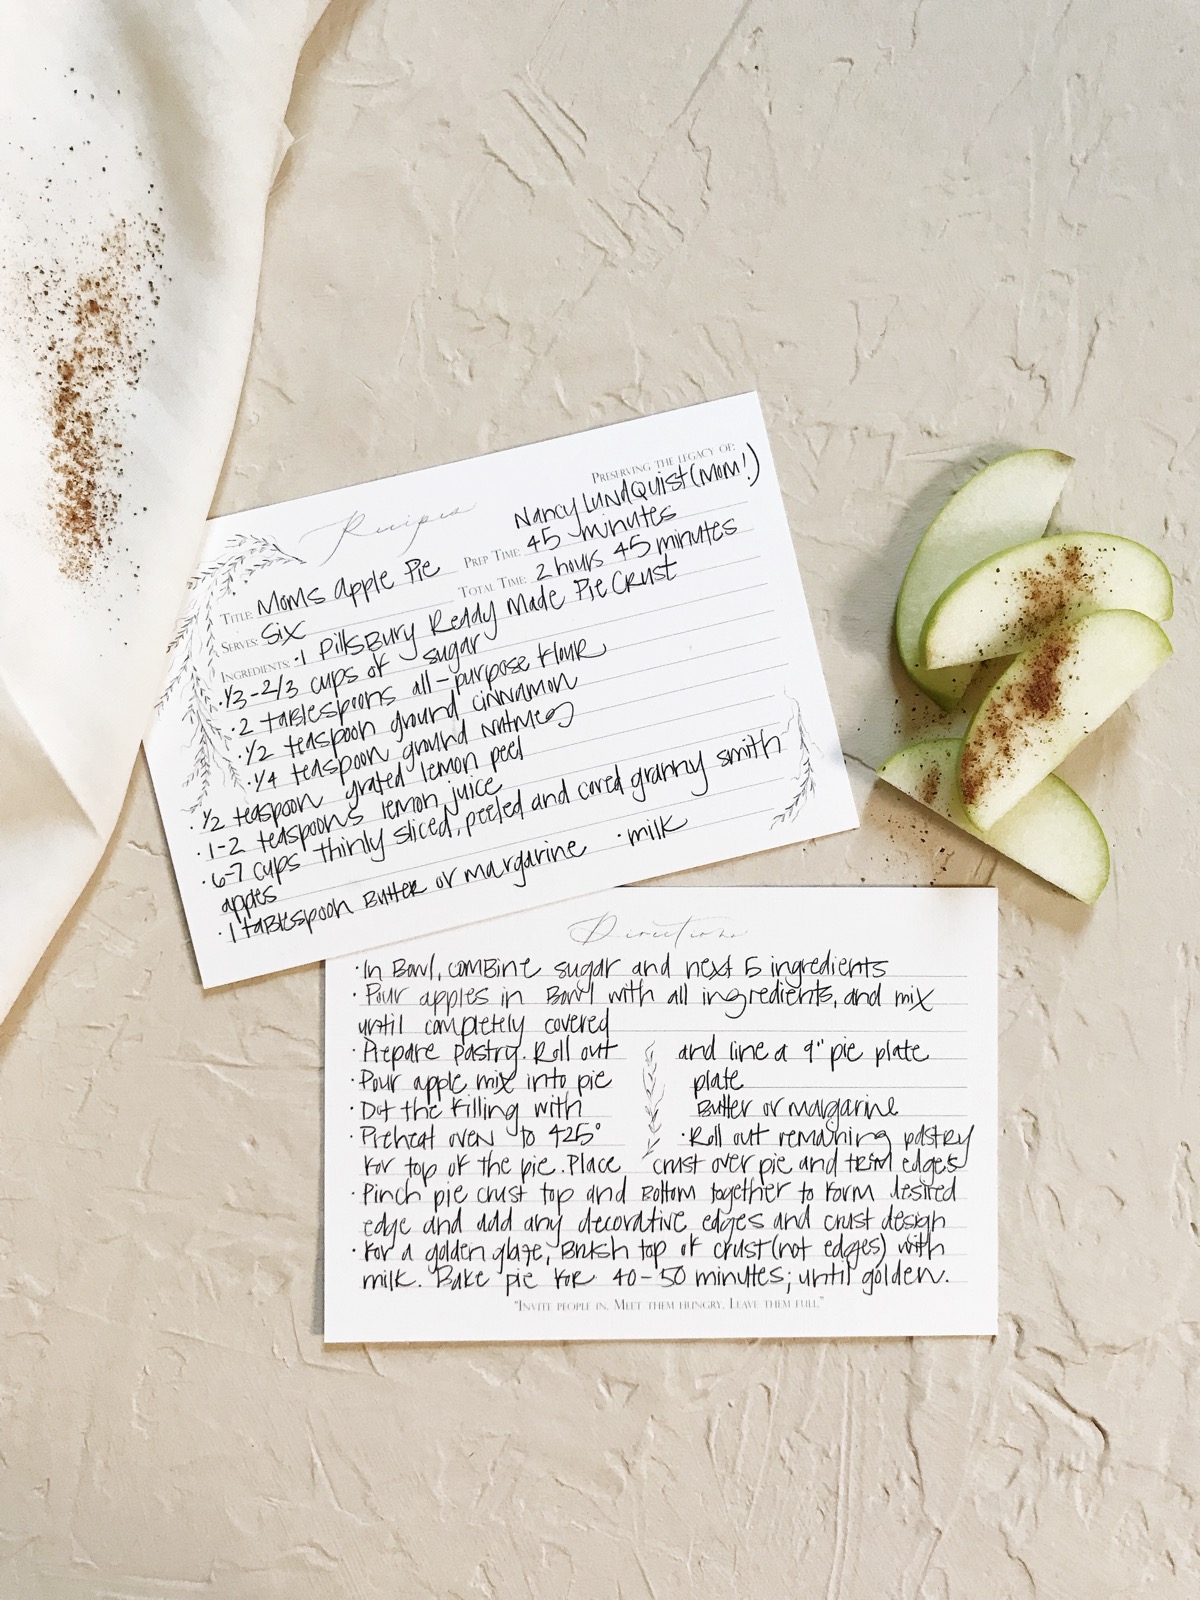 Recipes
PRESERVING THE LEGACY OF:
Nancy Lundquist (Mom!)
TITLE: Moms Apple Pie PREP TIME: 45 minutes
SERVES: Six TOTAL TIME: 2 hours 45 minutes
INGREDIENTS: · 1 Pillsbury Ready Made Pie Crust
· 1/3 - 2/3 cups of sugar
· 2 tablespoons all-purpose flour
· 1/2 teaspoon ground cinnamon
· 1/4 teaspoon ground nutmeg
· 1/2 teaspoon grated lemon peel
· 1-2 teaspoons lemon juice
· 6-7 cups thinly sliced, peeled and cored granny smith
apples
· 1 tablespoon Butter or margarine · milk
Directions
· In Bowl, combine sugar and next 5 ingredients
· Pour apples in Bowl with all ingredients, and mix
until completely covered
· Prepare pastry. Roll out and line a 9" pie plate
· Pour apple mix into pie plate
· Dot the filling with Butter or margarine
· Preheat oven to 425° · Roll out remaining pastry
for top of the pie. Place crust over pie and trim edges
· Pinch pie crust top and Bottom together to form desired
edge and add any decorative edges and crust design
· For a golden glaze, Brush top of crust (not edges) with
milk. Bake pie for 40-50 minutes; until golden.
"INVITE PEOPLE IN. MEET THEM HUNGRY. LEAVE THEM FULL."